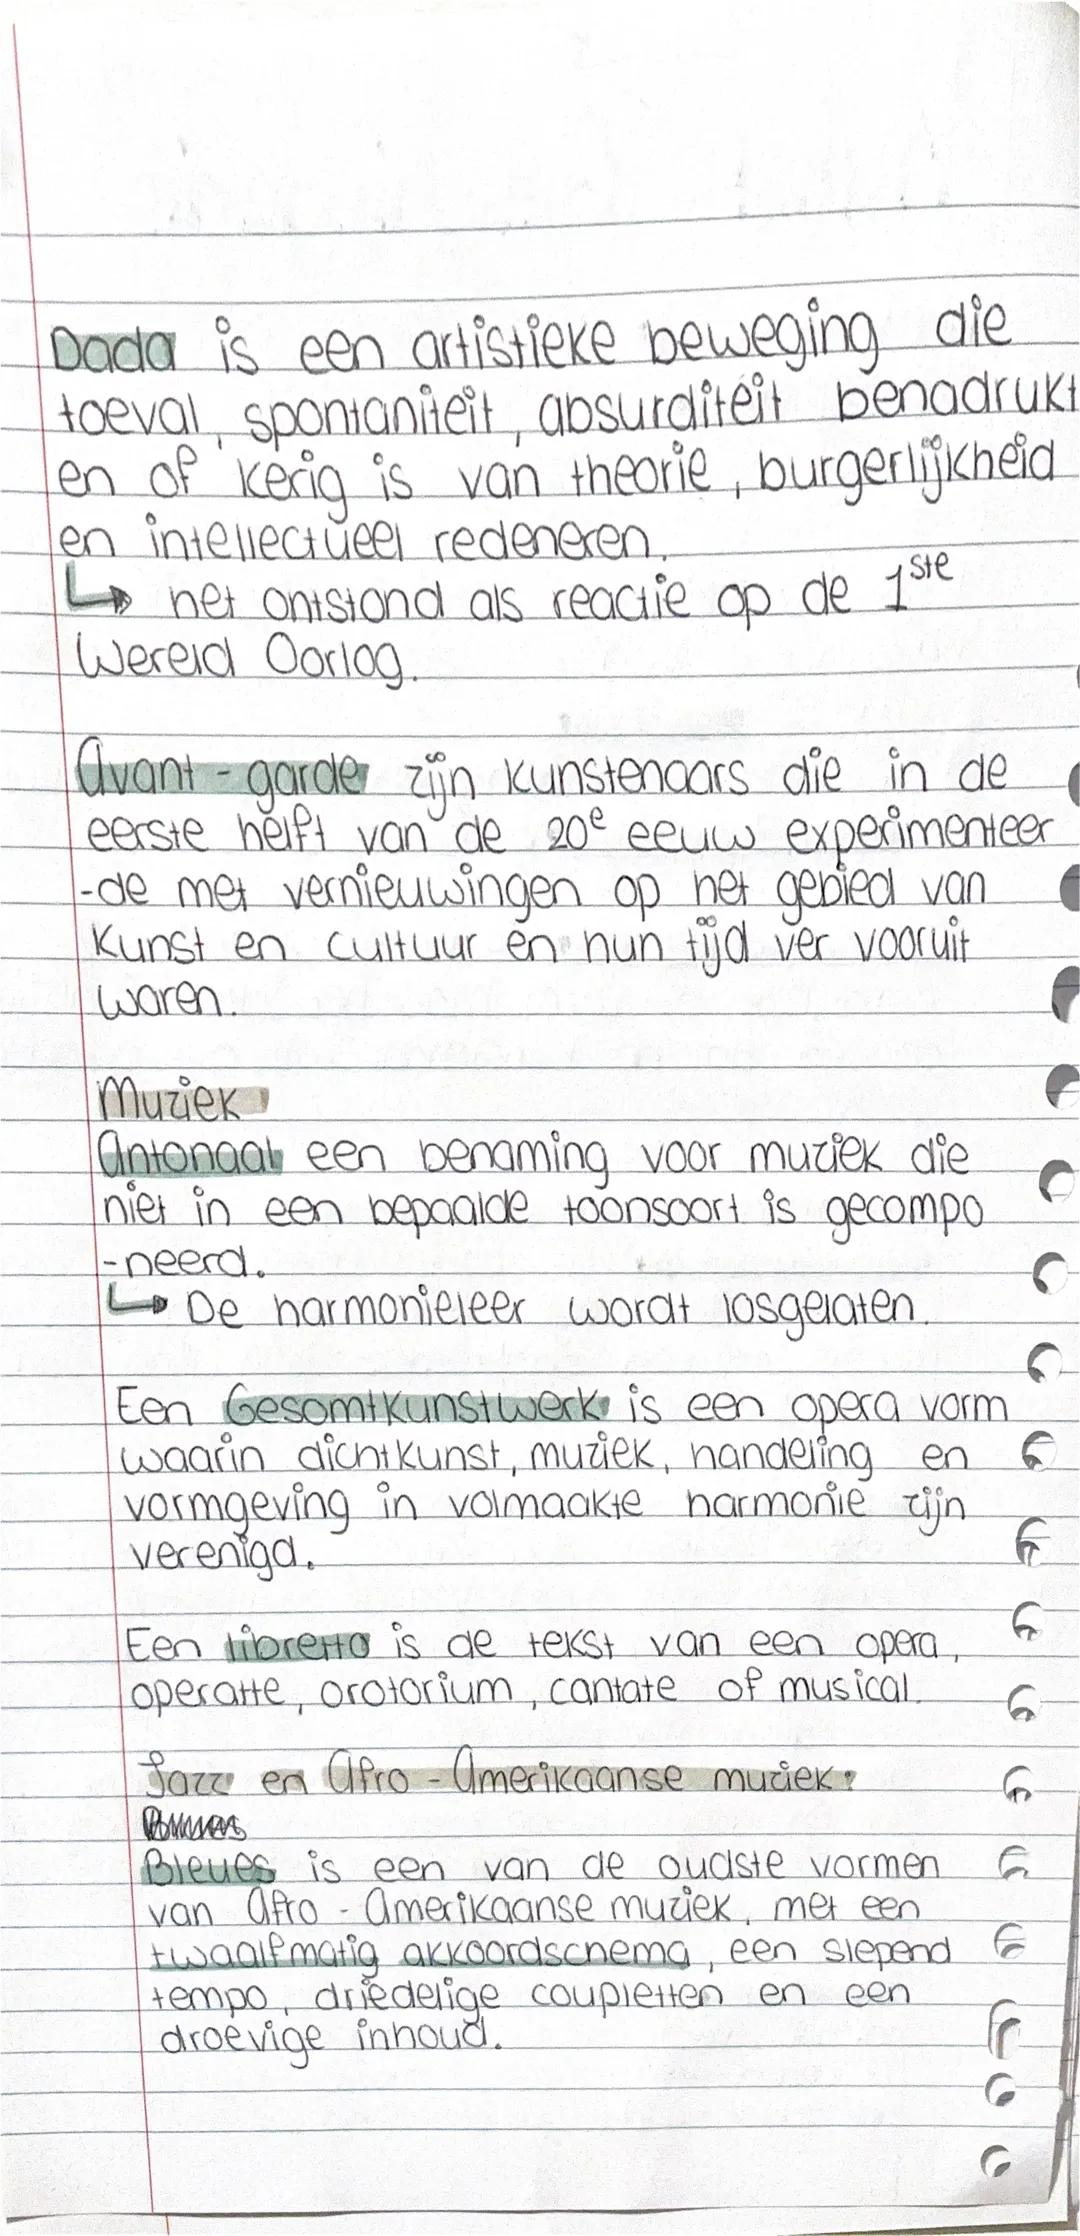 Dada is een artistieke beweging die
toeval, spontaniteit, absurditeit benadrukt
en of kerig is van theorie, burgerlijkheid
en intellectueel redeneren.
↳ het ontstond als reactie op de 1ste
Wereld Oorlog.
Avant-garde zijn kunstenaars die in de
eerste helft van de 20e eeuw experimenteer
-de met vernieuwingen op het gebied van
Kunst en cultuur en hun tijd ver vooruit
waren.
Muziek
Antonaal een benaming voor muziek die
niet in een bepaalde toonsoort is gecompo
-neerd.
↳ De harmonieleer wordt losgelaten.
Een Gesomtkunstwerk is een opera vorm
waarin dichtkunst, muziek, handeling en
vormgeving in volmaakte harmonie zijn
verenigd.
Een libretto is de tekst van een opera,
operatte, orotorium, cantate of musical.
Jazz en Afro-Amerikaanse muziek:
Bleues is een van de oudste vormen
van Afro-Amerikaanse muziek, met een
twaalfmatig akkoordschema, een slepend
tempo, driedelige coupletten en een
droevige inhoud.